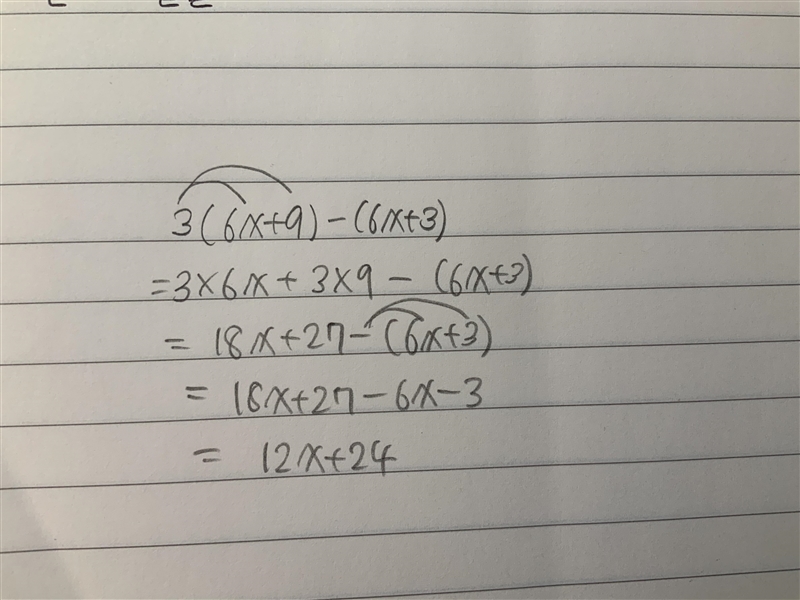 3(6x+9)-(6x+3)
=3×6x+3×9-(6x+3)
= 18x+27-(6x+3)
= 18x+27-6x-3
= 12x+24